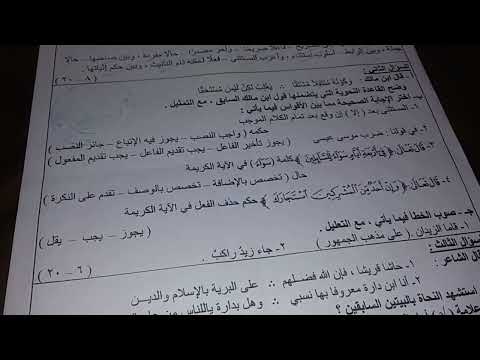 جملة ، وبين الرابط. أسلوب استثناء ، وأعرب المستثنى – فعلا لحقته تاء التأنيث ، وبين حكم إثباتها .
( ٨ – ٢٠ )
السؤال الثاني :
أ- قال ابن مالك : وكونه منتقلا مشتقا ∴ يغلب لكن ليس مستحقا
وضح القاعدة النحوية التي يتضمنها قول ابن مالك السابق ، مع التمثيل .
ب- اختر الإجابة الصحيحة مما بين الأقواس فيما يأتي :
١- المستثنى بـ ( إلا ) إن وقع بعد تمام الكلام الموجب
حكمه ( واجب النصب – يجوز فيه الإتباع – جائز النصب )
٢- في قولنا : ضرب موسى عيسى
( يجوز تأخير الفاعل – يجب تقديم الفاعل – يجب تقديم المفعول )
٣- قال تعالى ( في أربعة أيام سواء للسائلين ) كلمة ( سواء ) في الآية الكريمة
حال ( تخصص بالإضافة – تخصص بالوصف – تقدم على النكرة )
٤- قال تعالى ( وإن أحد من المشركين استجارك ) حكم حذف الفعل في الآية الكريمة
( يجوز – يجب – يقل )
جـ- صوب الخطأ فيما يأتي ، مع التعليل .
١- قاما الزيدان ( على مذهب الجمهور ) ٢- جاء زيدٌ راكبٌ .
( ٦ – ٢٠ )
السؤال الثالث :
قال الشاعر :
١- حاشا قريشا ، فإن الله فضلهم ∴ على البرية بالإسلام والدين
٢- أنا ابن دارة معروفا بها نسبي ∴ وهل بدارة ياللناس من
استشهد النحاة بالبيتين السابقين ؟